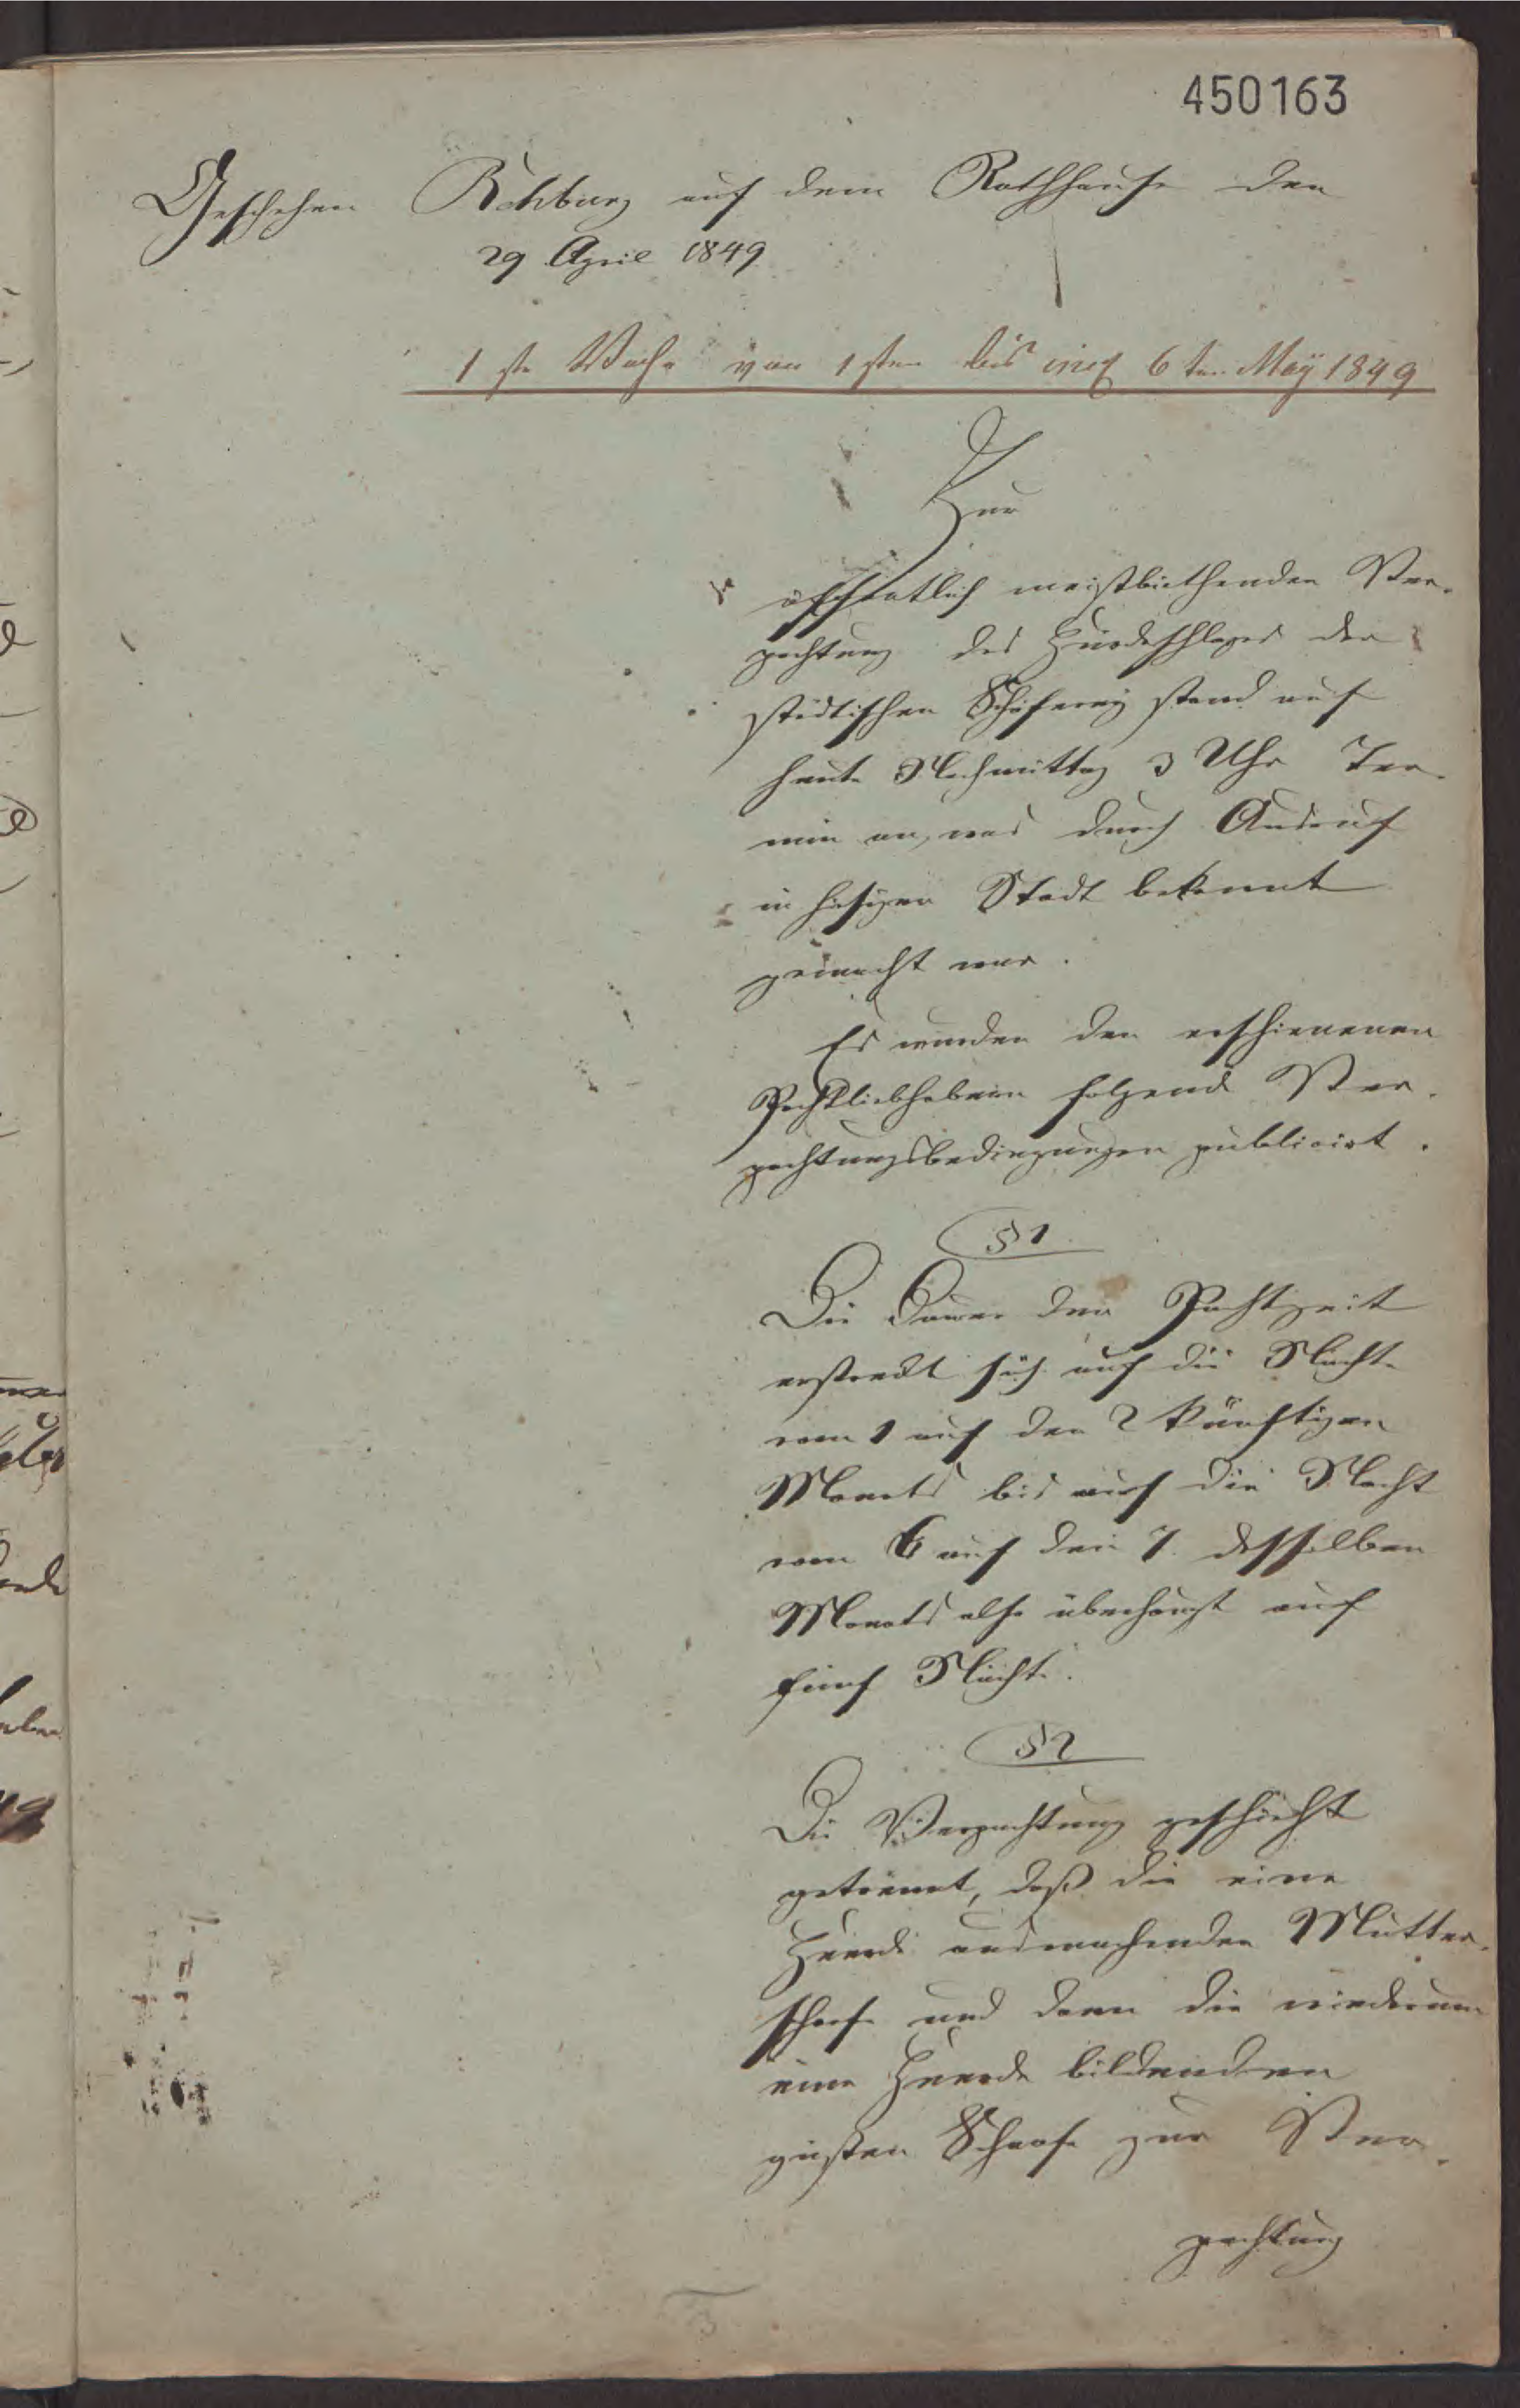 450163
Geschehen Rehburg auf dem Rathhause den
29 April 1849
1ste Woche von 1sten bis incl 6ten May 1849
Zur
öffentlich meistbiethenden Ver-
pachtung des Hürdeschlages der
städtischen Schäferey stand auf
heute Nachmittag 3 Uhr Ter-
min an, was durch Ausruf
in hiesiger Stadt bekannt
gemacht war.
Es wurden den erschienenen
Pachtliebhabern folgende Ver-
pachtungsbedingungen publicirt.
§ 1
Die Dauer der Pachtzeit
erstreckt sich auf die Nächte
vom 1 auf den 2 künftigen
Monats bis auf die Nacht
vom 6 auf den 7. desselben
Monats also überhaupt auf
fünf Nächte.
§ 2
Die Verpachtung geschieht
getrennt, daß die eine
Heerde ausmachenden Mutter-
schafe und dann die wiederum
eine Heerde bildenden
güsten Schaafe zur Ver-
pachtung